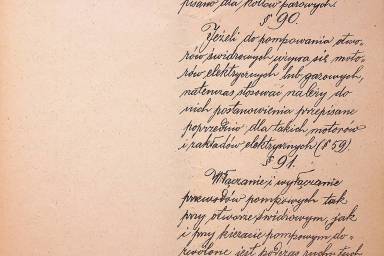 pisano dla kotłów parowych.
§ 90.
Jeżeli do pompowania otwo-
rów świdrowych używa się moto-
rów elektrycznych lub gazowych,
natenczas stosować należy do
nich postanowienia przepisane
poprzednio dla takich motorów
i zakładów elektrycznych (§ 59)
§ 91.
Włączanie i wyłączanie
przewodów pompowych tak
przy otworze świdrowym, jak
i przy kieracie pompowym do-
zwolone jest podczas ruchu tych